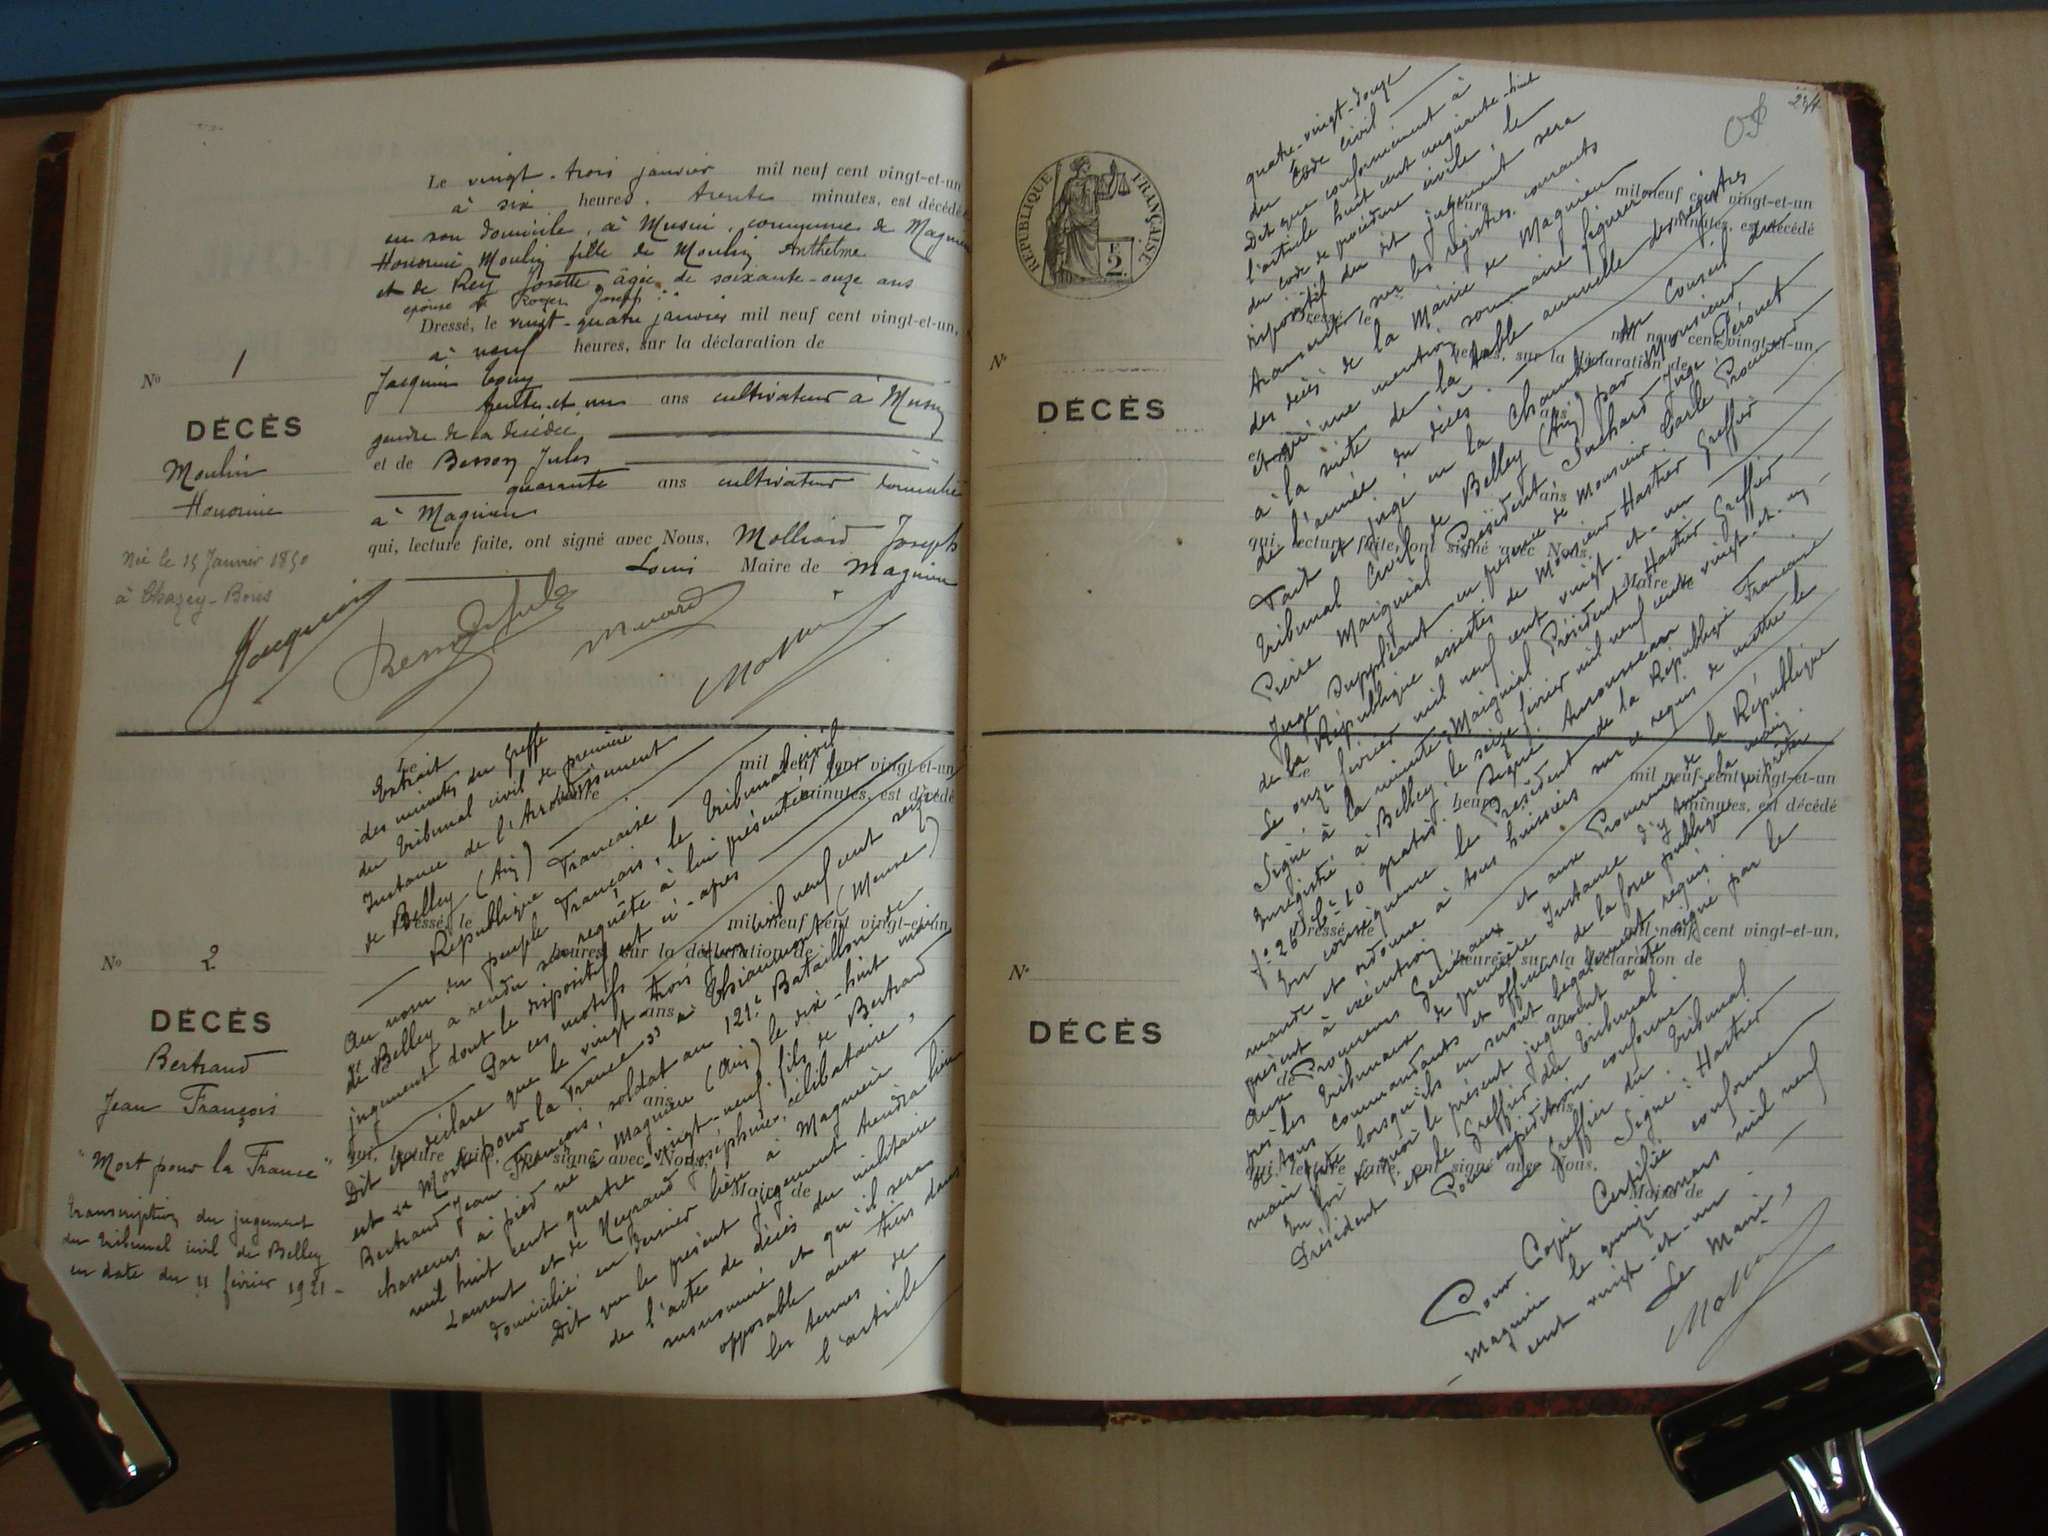 Le vingt-trois janvier mil neuf cent vingt-et-un
à six heures, trente minutes, est décédé
en son domicile, à Musin, commune de Magnieu
Honorine Moulin fille de Moulin Anthelme
et de Rey Josette âgée de soixante-onze ans
épouse de Roger Joseph
Dressé, le vingt-quatre janvier mil neuf cent vingt-et-un,
à neuf heures, sur la déclaration de
Jacquin
trente-et-un ans cultivateur à Musin
gendre de la décédée
et de Besson Jules
quarante ans cultivateur domicilié
à Magnieu
qui, lecture faite, ont signé avec Nous, Molliard Joseph
Louis Maire de Magnieu
Jacquin Besson Jules
N° 1
DÉCÈS
Moulin
Honorine
Née le 15 Janvier 1850
à Chazey-Bons
N° 2
DÉCÈS
Bertrand
Jean François
"Mort pour la France"
transcription du jugement
du tribunal civil de Belley
en date du 11 février 1921-
Extrait
des minutes du Greffe
du tribunal civil de première
Instance de l'Arrondissement
de Belley (Ain)
République Française
Au nom du peuple Français, le tribunal civil
de Belley a rendu sur requête à lui présentée le
jugement dont le dispositif est ci-après
Par ces motifs
Dit et déclare que le vingt-trois juin mil neuf cent seize
est "Mort pour la France" à Thiaumont (Meuse)
Bertrand Jean François, soldat au 121e Bataillon de
chasseurs à pied né à Magnieu (Ain) le dix-huit mai
mil huit cent quatre-vingt-neuf fils de Bertrand
Laurent et de Neyraud Joséphine, célibataire,
domicilié en dernier lieu à Magnieu
Dit que le présent jugement tiendra lieu
de l'acte de décès du militaire
susnommé et qu'il sera
opposable aux tiers dans
les termes de
l'article
Le mil neuf cent vingt-et-un
heure minutes, est décédé
Dressé, le mil neuf cent vingt-et-un,
heures, sur la déclaration de
ans
ans
qui, lecture faite, ont signé avec Nous,
Maire de
254
RÉPUBLIQUE FRANÇAISE
2 F.
N°
DÉCÈS
N°
DÉCÈS
quatre-vingt-douze
du Code civil
Dit que conformément à
l'article huit cent cinquante-huit
du code de procédure civile, le
dispositif du dit jugement sera
transcrit sur les registres courants
des décès de la Mairie de Magnieu
et qu'une mention sommaire figurera
à la suite de la table annuelle des registres
de l'année du décès.
Fait et jugé en la Chambre du Conseil du
tribunal Civil de Belley (Ain) par Monsieur
Pierre Maignial Président, Juge
Juge Suppléant en présence de Monsieur Carle Procureur
de la République assistés de Monsieur Hastier Greffier
Le onze février mil neuf cent vingt-et-un
Signé à la minute, Maignial Président Hastier Greffier
Enregistré à Belley, le seize février mil neuf cent vingt-et-un
gratis. Signé:
En conséquence le Président de la République Française
mande et ordonne à tous huissiers sur ce requis de mettre le
présent à exécution
Aux Procureurs Généraux et aux Procureurs de la République
près les tribunaux de première Instance d'y tenir la main
A tous commandants et officiers de la force publique de prêter
main forte lorsqu'ils en seront légalement requis.
En foi de quoi le présent jugement a été signé par le
Président et le Greffier du tribunal.
Pour expédition conforme
Le Greffier du tribunal
Signé: Hastier
Pour Copie Certifiée conforme
Magnieu le quinze mars mil neuf
cent vingt-et-un
Le Maire,
mil neuf cent vingt-et-un
heure minutes, est décédé
Dressé, le mil neuf cent vingt-et-un,
heures, sur la déclaration de
ans
qui, lecture faite, ont signé avec Nous,
Maire de
Le mil neuf cent vingt-et-un
heure minutes, est décédé
Dressé, le mil neuf cent vingt-et-un,
heures, sur la déclaration de
ans
qui, lecture faite, ont signé avec Nous,
Maire de